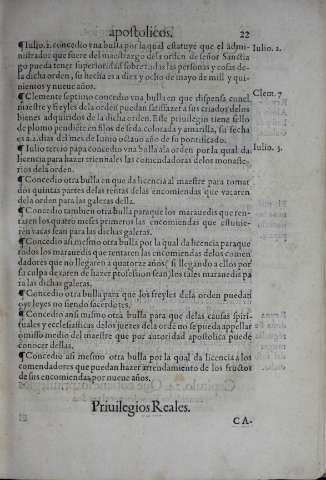 apostolicos. 22
¶Iulio.2. concedio vna bulla por la qual estatuye que el admi-
nistrador que fuere del maestrazgo dela orden de señor Sanctia
go pueda tener superioridad sobre todas las personas y cosas de-
la dicha orden, su fecha es a diez y ocho de mayo de mill y qui-
nientos y nueue años.
Iulio. 2.
¶Clemente septimo concedio vna bulla en que dispensa conel
maestre y freyles dela orden puedan satisfazer a sus criados delos
bienes adquiridos de la dicha orden. Este priuilegio tiene sello
de plomo pendiẽte en filos de seda colorada y amarilla, su fecha
es a.2. dias del mes de Iunio octauo año de su pontificado.
Clem. 7
¶Iulio tercio papa concedio vna bulla ala orden por la qual da
licencia para hazer triennales las comendadoras delos monaste-
rios dela orden.
Iulio. 3.
¶Concedio otra bulla en que da licencia al maestre para tomar
dos quintas partes delas rentas delas encomiendas que vacaren
dela orden para las galeras della.
¶Concedio tambien otra bulla paraque los marauedis que ren-
taren los quatro meses primeros las encomiendas que estuuie-
ren vacas sean para las dichas galeras.
¶Concedio ansi mesmo otra bulla por la qual da licencia paraque
todos los marauedis que rentaren las encomiendas delos comen
dadores que no llegaren a quatorze años, si llegando a ellos por
su culpa dexaren de hazer profession sean los tales marauedis pa
ra las dichas galeras.
¶Concedio otra bulla para que los freyles dela orden puedan
oyr leyes no siendo sacerdotes.
¶Concedio ansi mismo otra bulla para que delas causas spiri-
tuales y ecclesiasticas delos juezes dela ordẽ no se pueda appellar
omisso medio del maestre que por autoridad apostolica puede
conocer dellas.
¶Concedio assi mesmo otra bulla por la qual da licencia a los
comendadores que puedan hazer arrendamiento de los fructos
de sus encomiendas por nueue años.
Priuilegios Reales.
CA-